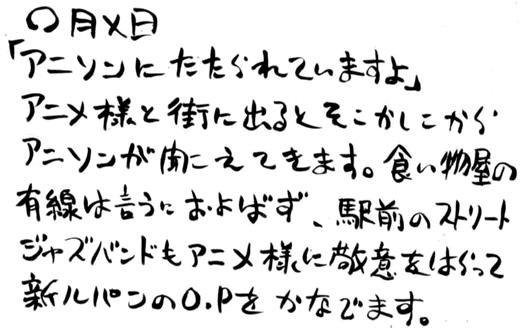 〇月×日
「アニソンにたたられていますよ」
アニメ様と街に出るとそこかしこから
アニソンが聞こえてきます。食い物屋の
有線は言うにおよばず、駅前のストリート
ジャズバンドもアニメ様に敬意をはらって
新ルパンのO.Pをかなでます。